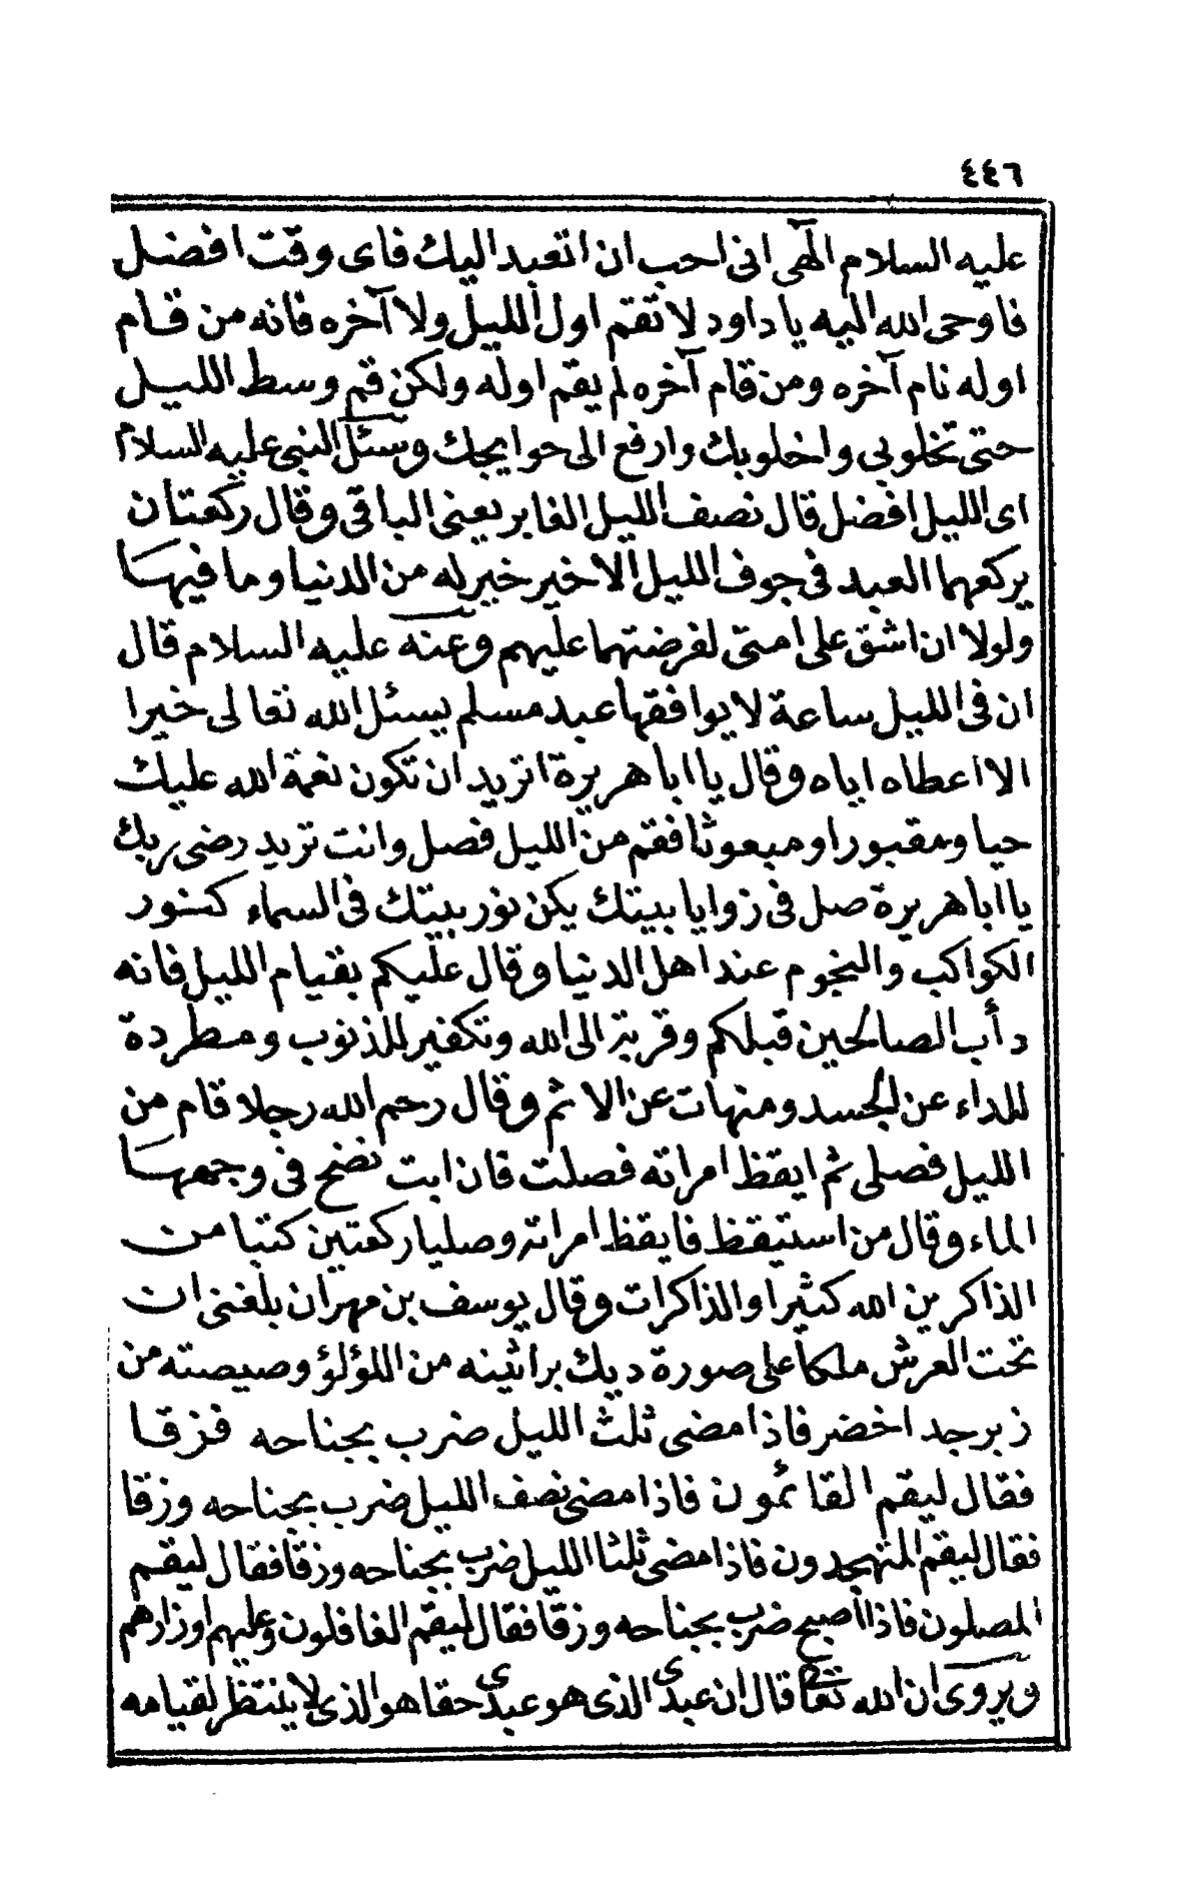 ٤٤٦
عليه السلام الهى انى احب ان اتعبد اليك فاى وقت افضل
فاوحى الله اليه يا داود لا تقم اول الليل ولا آخره فانه من قام
اوله نام آخره ومن قام آخره لم يقم اوله ولكن قم وسط الليل
حتى تخلوبى واخلوبك وارفع الى حوايجك وسئل النبى عليه السلام
اى الليل افضل قال نصف الليل الغابر يعنى الباقى وقال ركعتان
يركعهما العبد فى جوف الليل الاخير خير له من الدنيا وما فيها
ولولا ان اشق على امتى لفرضتهما عليهم وعنه عليه السلام قال
ان فى الليل ساعة لا يوافقها عبد مسلم يسئل الله تعالى خيرا
الا اعطاه اياه وقال يا ابا هريرة اتريد ان تكون نعمة الله عليك
حيا ومقبورا ومبعوثا فقم من الليل فصل وانت تريد رضى ربك
يا ابا هريرة صل فى زوايا بيتك يكن نور بيتك فى السماء كنور
الكواكب والنجوم عند اهل الدنيا وقال عليكم بقيام الليل فانه
دأب الصالحين قبلكم وقربة الى الله وتكفير للذنوب ومطردة
للداء عن الجسد ومنهات عن الاثم وقال رحم الله رجلا قام من
الليل فصلى ثم ايقظ امراته فصلت فان ابت نضح فى وجهها
الماء وقال من استيقظ فايقظ امراته وصليا ركعتين كتبا من
الذاكرين الله كثيرا والذاكرات وقال يوسف بن مهران بلغنى ان
تحت العرش ملكا على صورة ديك براثينه من اللؤلؤ وصيصته من
زبرجد اخضر فاذا مضى ثلث الليل ضرب بجناحه فزقا
فقال ليقم القائمون فاذا مضى نصف الليل ضرب بجناحه وزقا
فقال ليقم المتهجدون فاذا مضى ثلثا الليل ضرب بجناحه وزقا فقال ليقم
المصلون فاذا اصبح ضرب بجناحه وزقا فقال ليقم الغافلون وعليهم اوزارهم
ويروى ان الله تعا قال ان عبدى الذى هو عبدى حقا هو الذى لا ينتظر لقيامه